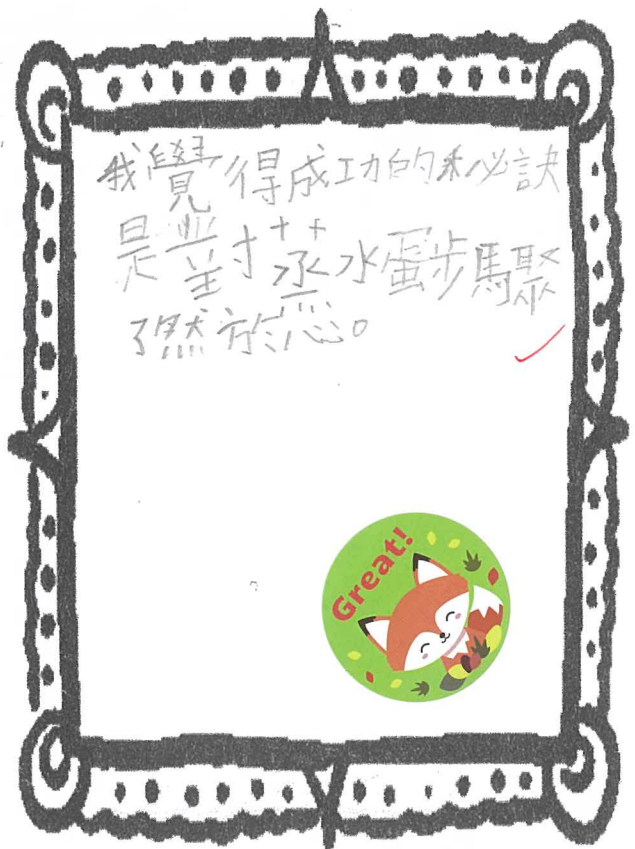 我覺得成功的秘訣
是對蒸水蛋步馬聚
了然於心。
Great!